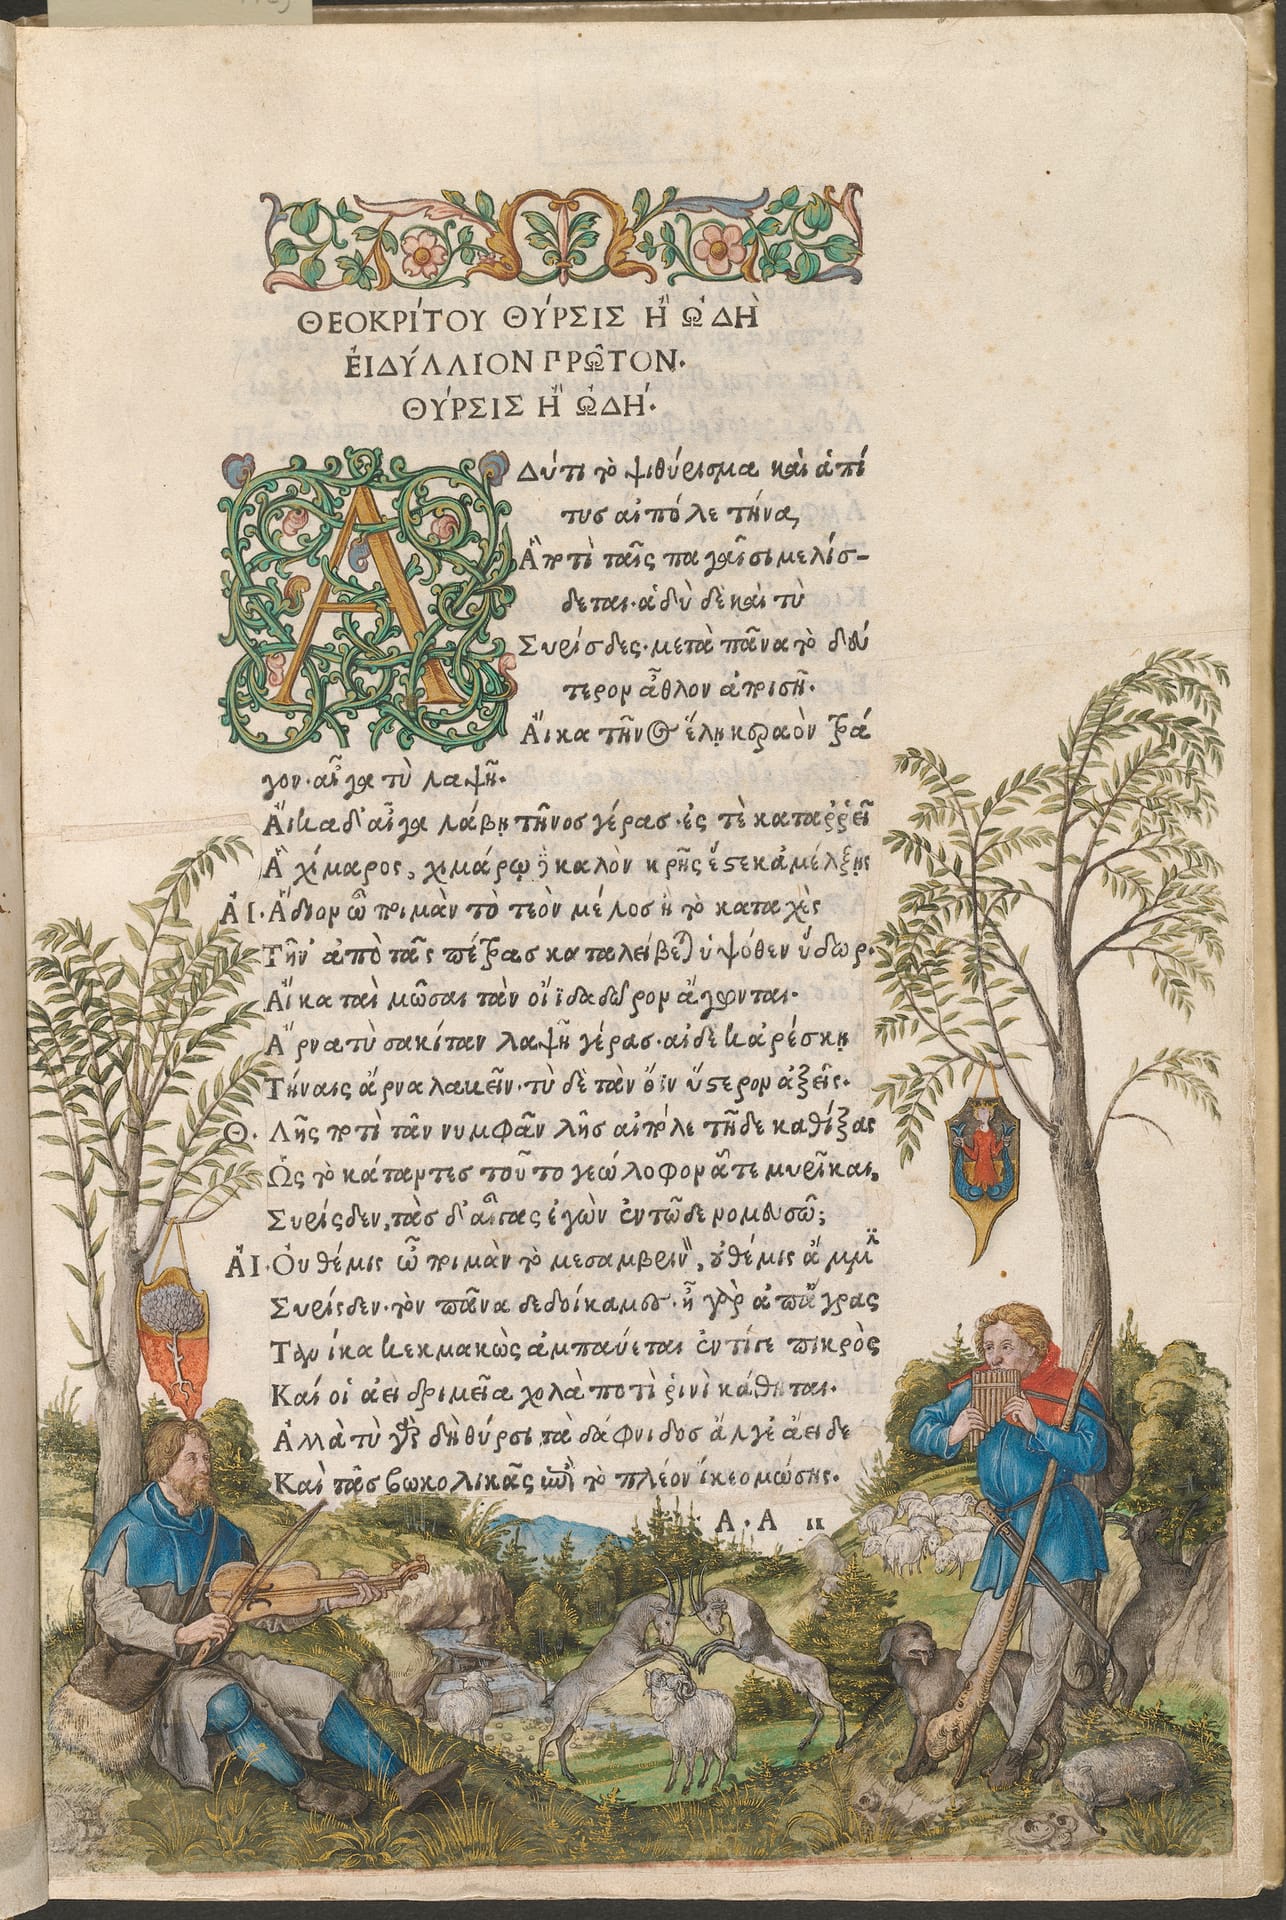 ΘΕΟΚΡΊΤΟΥ ΘΎΡΣΙΣ Ἢ ὨΔῊ
ἘΙΔΎΛΛΙΟΝ ΠΡΩ͂ΤΟΝ.
ΘΎΡΣΙΣ Ἢ ὨΔΉ.
ΑΔύ τι τὸ ψιθύρισμα καὶ ἁ πί
τυσ αἰπόλε τήνα,
Ἃ ποτὶ ταῖς παγαῖσι μελίσ-
δεται. ἁδὺ δὲ καὶ τὺ
Συρίσδες. μετὰ πᾶνα τὸ δεύ
τερον ἆθλον ἀποισῇ.
Ἄικα τῆνος ἕλῃ κεραὸν τρά
γον. αἶγα τὺ λαψῇ.
Ἄικα δ' αἶγα λάβῃ τῆνοσ γέρασ. ἐς τὲ καταῤῥεῖ
Ἁ χίμαρος, χιμάρῳ δὲ καλὸν κρῆς ἔστε κ' ἀμέλξῃς
ἈΙ. Ἅδιον ὦ ποιμὰν τὸ τεὸν μέλοσ ἢ τὸ καταχὲς
Τῆν' ἀπὸ τᾶς πέτρασ καταλείβεται ὑψόθεν ὕδωρ.
Αἴκα ταὶ μῶσαι τὰν οἴϊδα δῶρον ἄγωνται.
Ἄρνα τὺ σακίταν λαψῇ γέρασ. αἰ δέ κ' ἀρέσκῃ
Τήναις ἄρνα λαβεῖν. τὺ δὲ τὰν ὄϊν ὕστερον ἀξεῖς.
Θ. Λῇς ποτὶ τᾶν νυμφᾶν λῇσ αἰπόλε τῇδε καθίξας
Ὡς τὸ κάταντες τοῦτο γεώλοφον ἅτε μυρῖκαι,
Συρίςδεν, τὰσ δ' αἶγας ἐγὼν ἐν τῷδε νομευσῶ;
ἌΙ. Ὀυ θέμις ὦ ποιμὰν τὸ μεσαμβρινὸν, οὐ θέμις ἄμμιν
Συρίςδεν. τὸν πᾶνα δεδοίκαμες. ἦ γὰρ ἀπ' ἄγρας
Τανίκα κεκμακὼς ἀμπαύεται ἐντί γε πικρὸς
Καί οἱ ἀεὶ δριμεῖα χολὰ ποτὶ ῥινὶ κάθηται.
Ἀλλὰ τὺ γὰρ δὴ θύρσι τὰ δάφνιδοσ ἄλγε' ἄειδε
Καὶ τᾶσ βωκολικᾶς ἐπὶ τὸ πλέον ἵκεο μώσης.
Α . Α ιι